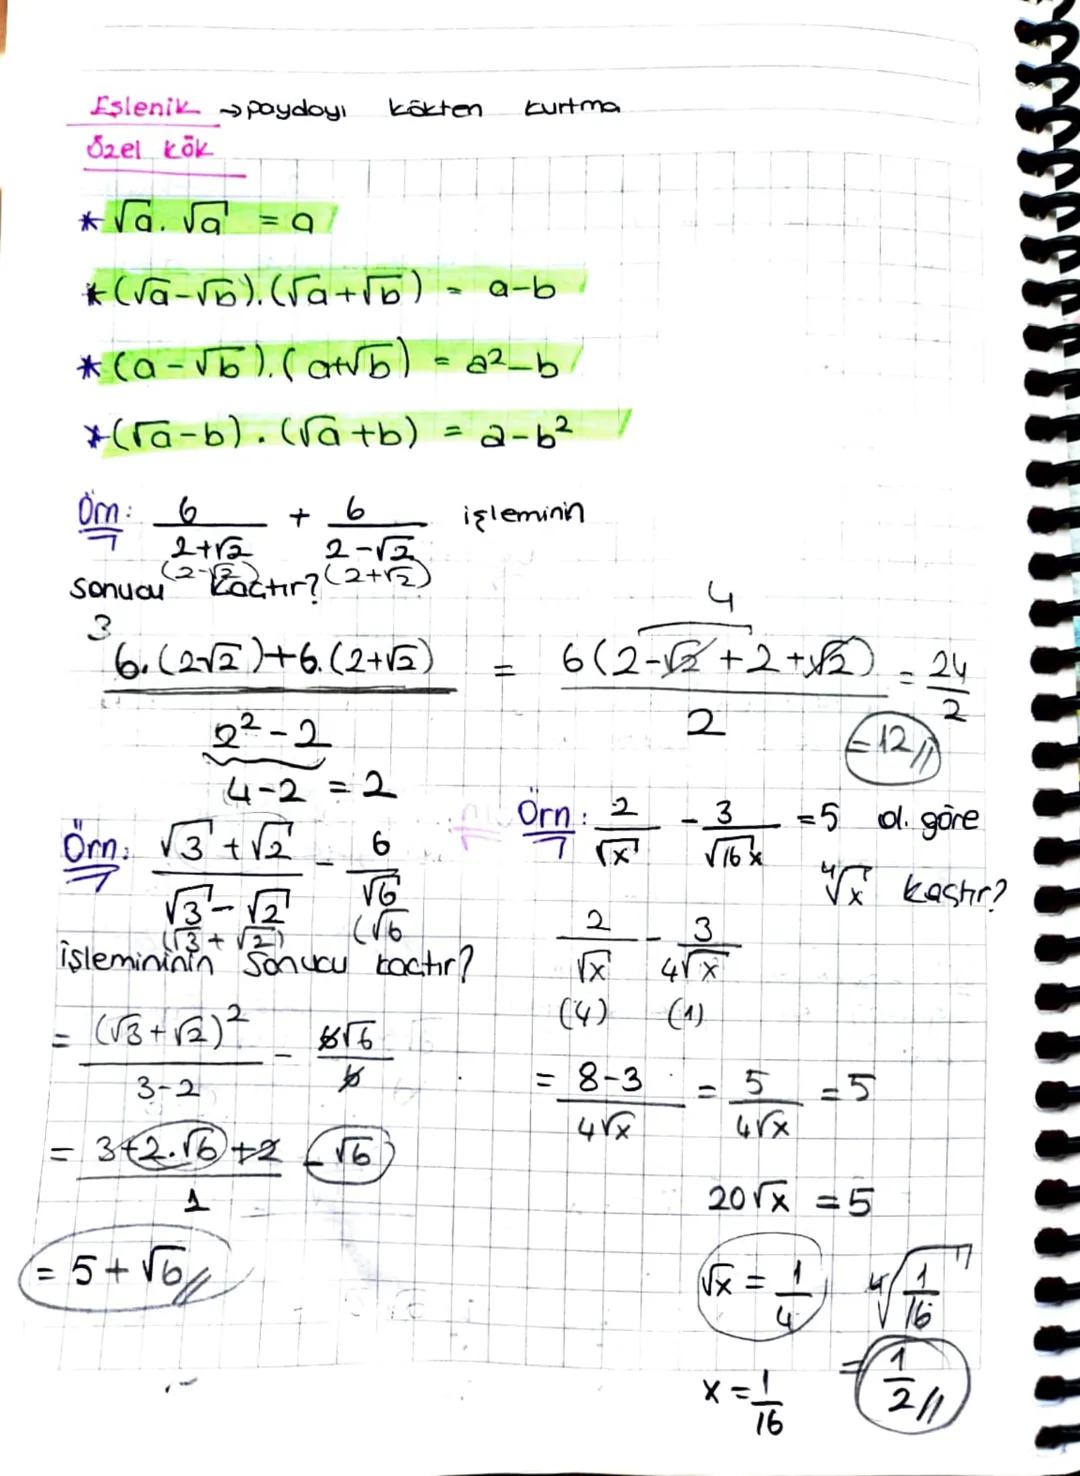 Eşlenik → paydayı kökten kurtma
Özel kök
* √a . √a = a
* (√a-√b).(√a+√b) = a-b
* (a-√b).(a+√b) = a²-b
* (√a-b).(√a+b) = a-b²
Örn: 6/(2+√2) + 6/(2-√2) işleminin
(2-√2) (2+√2)
sonucu kaçtır?
3
6.(2√2)+6.(2+√2) / 2²-2 = 6(2-√2+2+√2) / 2 = 24/2
4
= 12//
4-2 = 2
Örn: (√3+√2)/(√3-√2) - 6/√6
(√3+√2) (√6
işlemininin sonucu kaçtır?
= (√3+√2)²/(3-2) - 6√6/6
= (3+2.√6+2)/1 - √6
= 5+√6//
Örn: 2/√x - 3/√16x = 5 ol. göre
⁴√x kaçtır?
2/√x - 3/4√x
(4) (1)
= (8-3)/4√x = 5/4√x = 5
20√x = 5
√x = 1/4
⁴√(1/16)
= 1/2//
x = 1/16